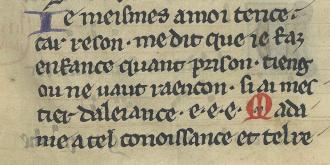 Ie meismes amoi tence·
car reson· me dit que ie faz
enfance quant prison· tieng
ou ne vaut raencon· si ai mes
tier daleiance· e·e·e· Mada
me a tel conoissance et tel re